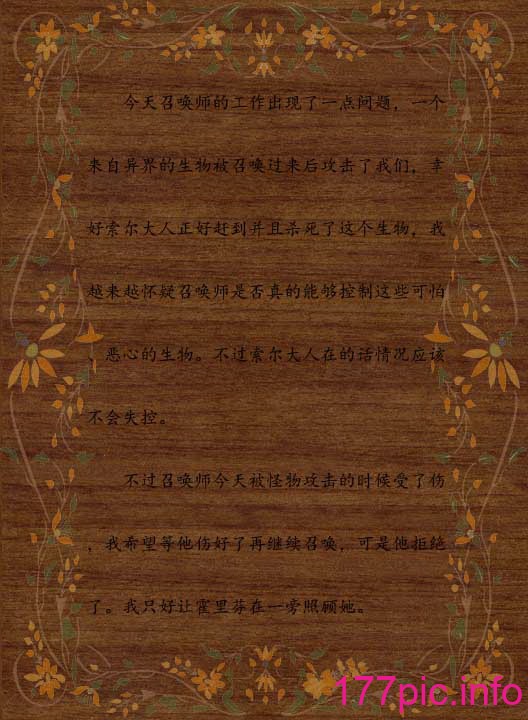 今天召唤师的工作出现了一点问题，一个
来自异界的生物被召唤过来后攻击了我们，幸
好索尔大人正好赶到并且杀死了这个生物，我
越来越怀疑召唤师是否真的能够控制这些可怕
、恶心的生物。不过索尔大人在的话情况应该
不会失控。
不过召唤师今天被怪物攻击的时候受了伤
，我希望等他伤好了再继续召唤，可是他拒绝
了。我只好让霍里芬在一旁照顾她。
177pic.info